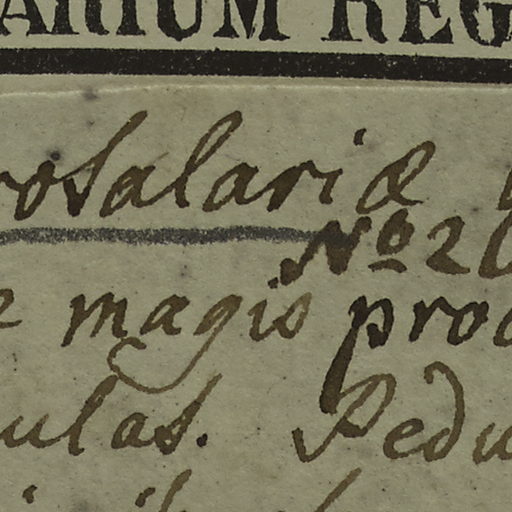 ARIUM REG
rosalariæ
Nº 26
magis proc
ulas. Pedu